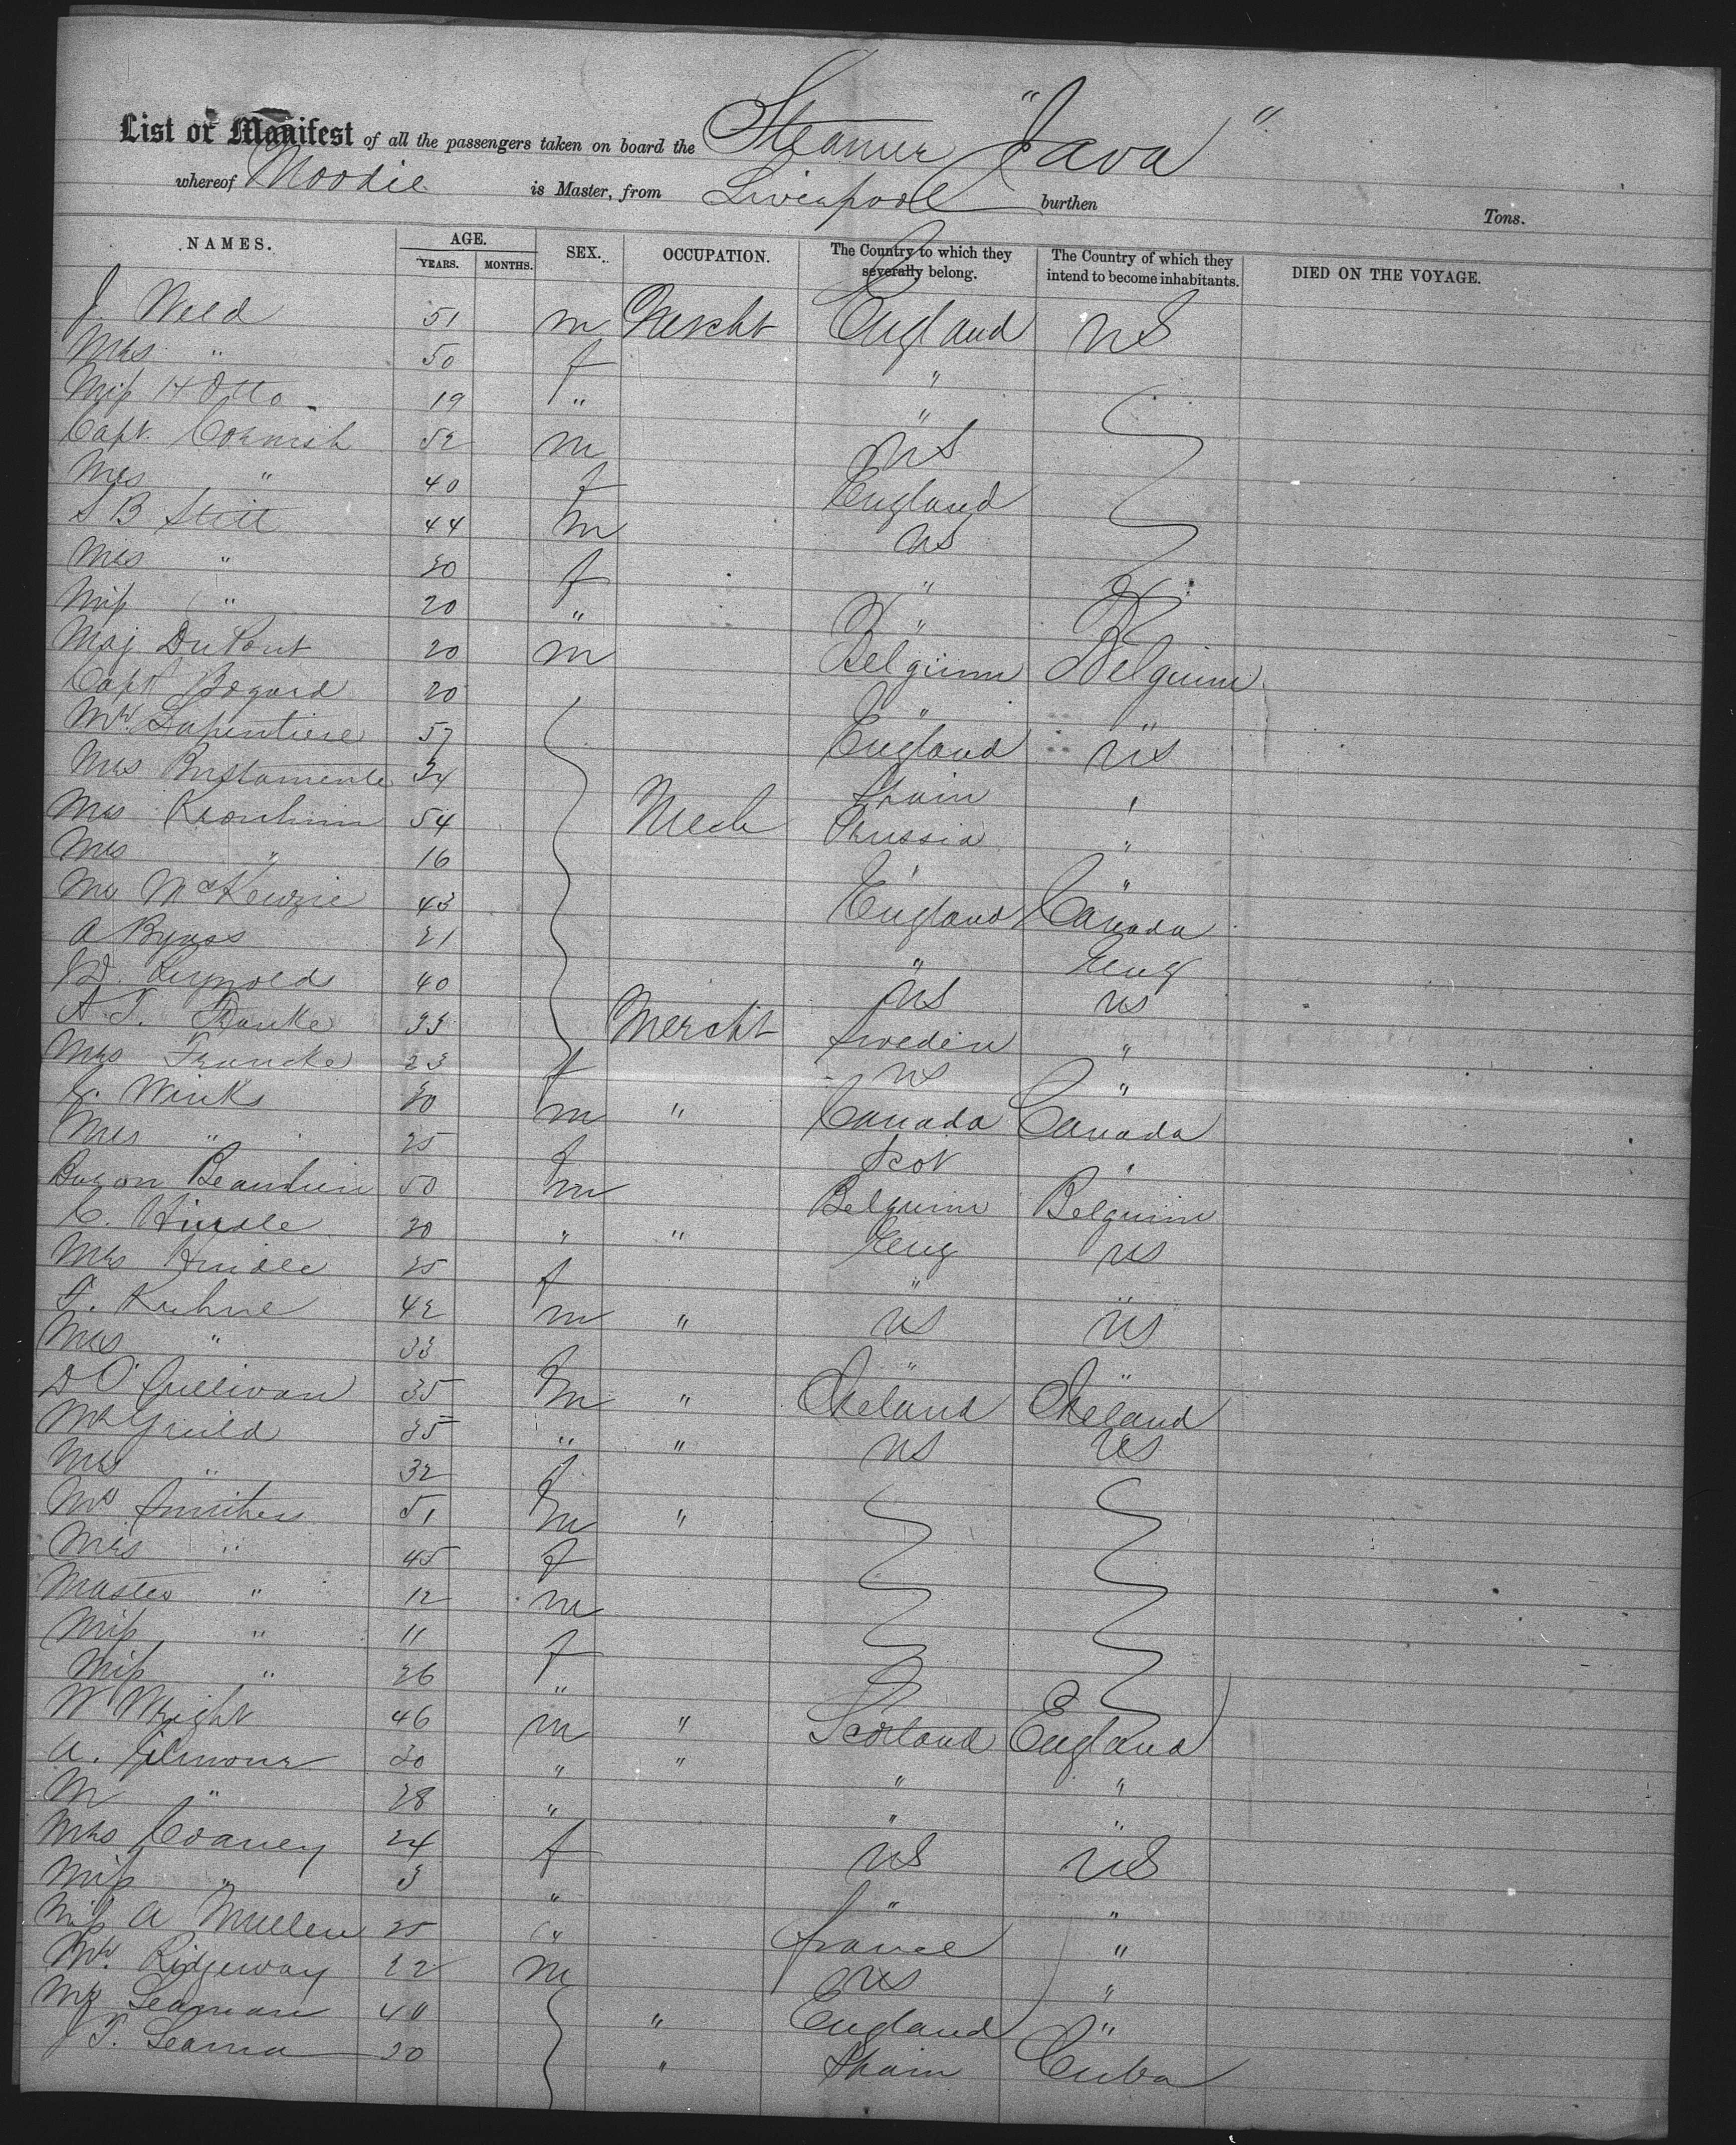 List or Manifest of all the passengers taken on board the Steamer "Java"
whereof Moodie is Master, from Liverpool burthen Tons.
NAMES. AGE. YEARS. MONTHS. SEX. OCCUPATION. The Country to which they severally belong. The Country of which they intend to become inhabitants. DIED ON THE VOYAGE.
J. Weld 51 m Mercht England US
Mrs " 50 f "
Miss H Otto 19 " "
Capt. Cornish 52 m US
Mrs " 40 f England
S B Stitt 44 m US
Mrs " f "
Miss " 20 " "
Maj DuPont 20 m Belgium Belguim
Capt Bogard 20 " "
Mr. 57 England US
Mrs Bustamente 34 Spain "
54 Mech Prussia "
Mrs " 16 " "
Mr McKenzie 43 England Canada
A Byass 21 " Eng
Reynolds 40 US US
A. T. Franke 33 Mercht Sweden "
Mrs Francke 23 f US "
Winks m " Canada Canada
Mrs " 25 f Scot "
Baron 50 m Belguim Belguim
C. Hindle 30 " " Eng US
Mrs Hindle 25 f " "
F. Kuhne 42 m " US US
Mrs " 33 f " "
D O'Sullivan 35 m " Ireland Ireland
Mr Guild 35 " " US US
Mrs " 32 f
Mr Smithers 51 m "
Mrs " 45 f
Master " 12 m
Miss " 11 f
Miss " 26 "
W Wright 46 m " Scotland England
A. Gilmour 30 " " " "
M " 28 " " "
Mrs 24 f US US
Miss " 3 " " "
Miss A Mullen 25 " France "
Mr. Ridgeway 22 m US "
Mr Seaman 40 " England "
J T. 20 " Spain Cuba